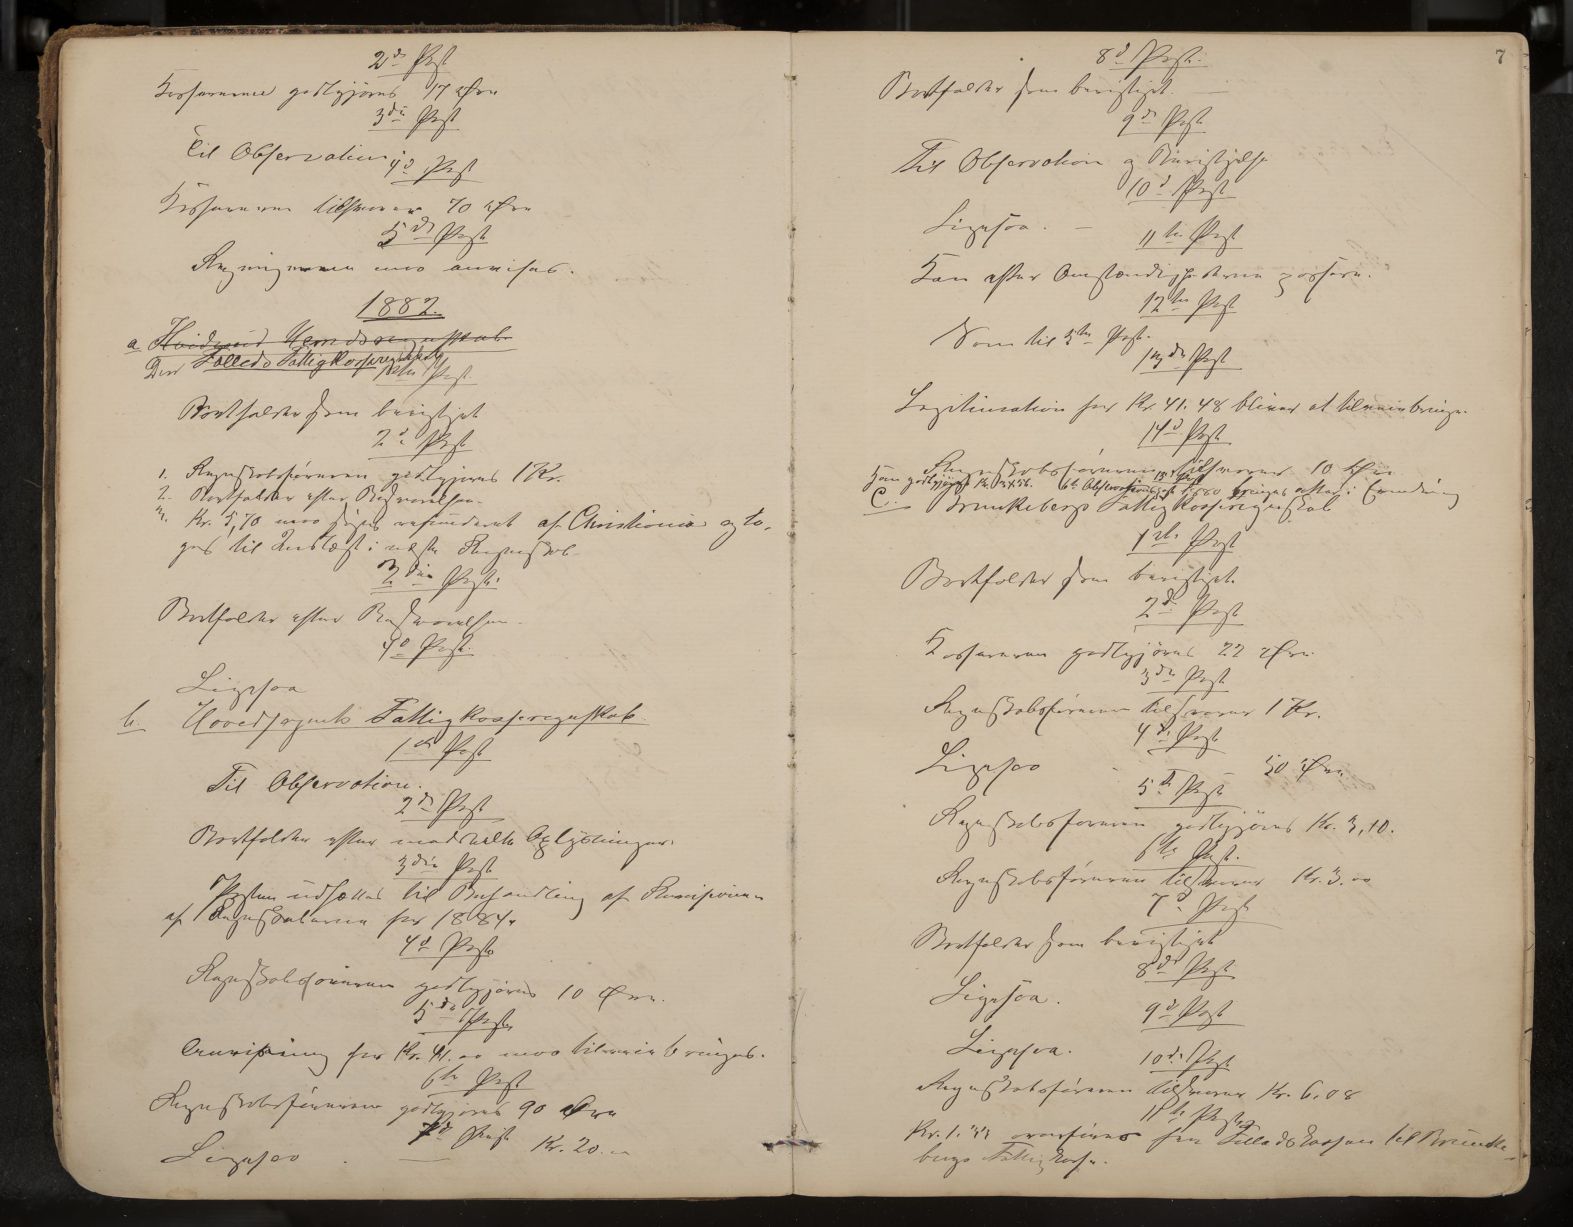 2d Post
Kassereren godtgjøres 17 Øre
3die Post
Til Observation.
4d Post
Kassereren tilsvarer 70 Øre
5te Post
Regningerne maa anvises.
1882.
a Hvideseid Herredsregnskab.
Den Fælleds Fattigkasseregnskab
1ste Post
Bortfalder som berigtiget
2d Post
1. Regnskabsføreren godtgjøres 1 Kr.
2. Bortfalder efter Besvarelsen.
3. Kr. 5,70 maa søges refunderet af Christiania og ta-
ges til Indtægt i næste Regnskab.
3die Post.
Bortfalder efter Besvarelsen.
4d Post.
Ligesaa
b. Hovedsognets Fattigkasseregnskab.
1ste Post
Til Observation.
2den Post
Bortfalder efter meddelte Oplysninger.
3die Post
Posten udsættes til Behandling af Revisionen
af Regnskaberne for 1884.
4d Post
Regnskabsføreren godtgjøres 10 Øre.
5te Post
Anvisning for Kr. 41.00 maa tilveiebringes.
6te Post
Regnskabsføreren godtgjøres 90 Øre
7d Post
Ligesaa . — Kr. 20.00
7
8d Post.
Bortfalder som berigtiget. —
9de Post
Til Observation og Berigtigelse
10d Post
Ligesaa. —
11te Post
Kan efter Omstændighederne passere.
12te Post
Som til 5te Post.
13de Post
Legitimation for Kr 41.48 bliver at tilveiebringe.
14d Post
Regnskabsføreren tilsvarer 10 Øre
15d Post
Han godtgjøres Kr. 6te Observationspost 1880 bringes atter i Erindring
C. Brunkebergs Fattigkasseregnskab
1ste Post
Bortfalder som berigtiget.
2d Post
Kassereren godtgjøres 22 Øre
3die Post
Regnskabsføreren tilsvarer 1 Kr.
4de Post
Ligesaa — 50 Øre
5te Post
Regnskabsføreren godtgjøres Kr. 3,10.
6te Post.
Regnskabsføreren tilsvarer Kr. 3.00
7d Post
Bortfalder som berigtiget
8de Post
Ligesaa.
9d Post
Ligesaa.
10de Post.
Regnskabsføreren tilsvarer Kr. 6.08
11te Post
Kr. 1.33 overføres fra Fælledskassen til Brunke-
bergs Fattigkasse.